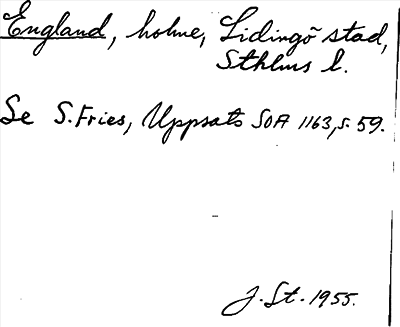 England, holme, Lidingö stad,
Sthlms l.
Se S. Fries, Uppsats SOA 1163, s. 59.
J. St. 1955.